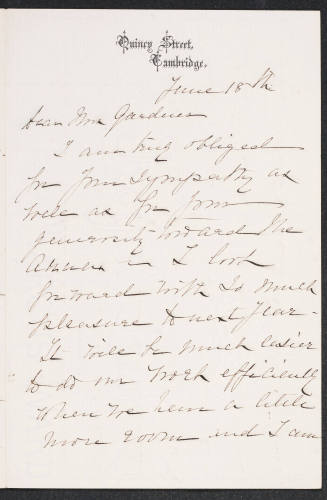 Quincy Street,
Cambridge.
June 18th
Dear Mrs Gardner
I am truly obliged
for your sympathy as
well as for your
generosity toward the
Annex & I look
forward with so much
pleasure to next year -
It will be much easier
to do our work efficiently
when we have a little
more room and I am